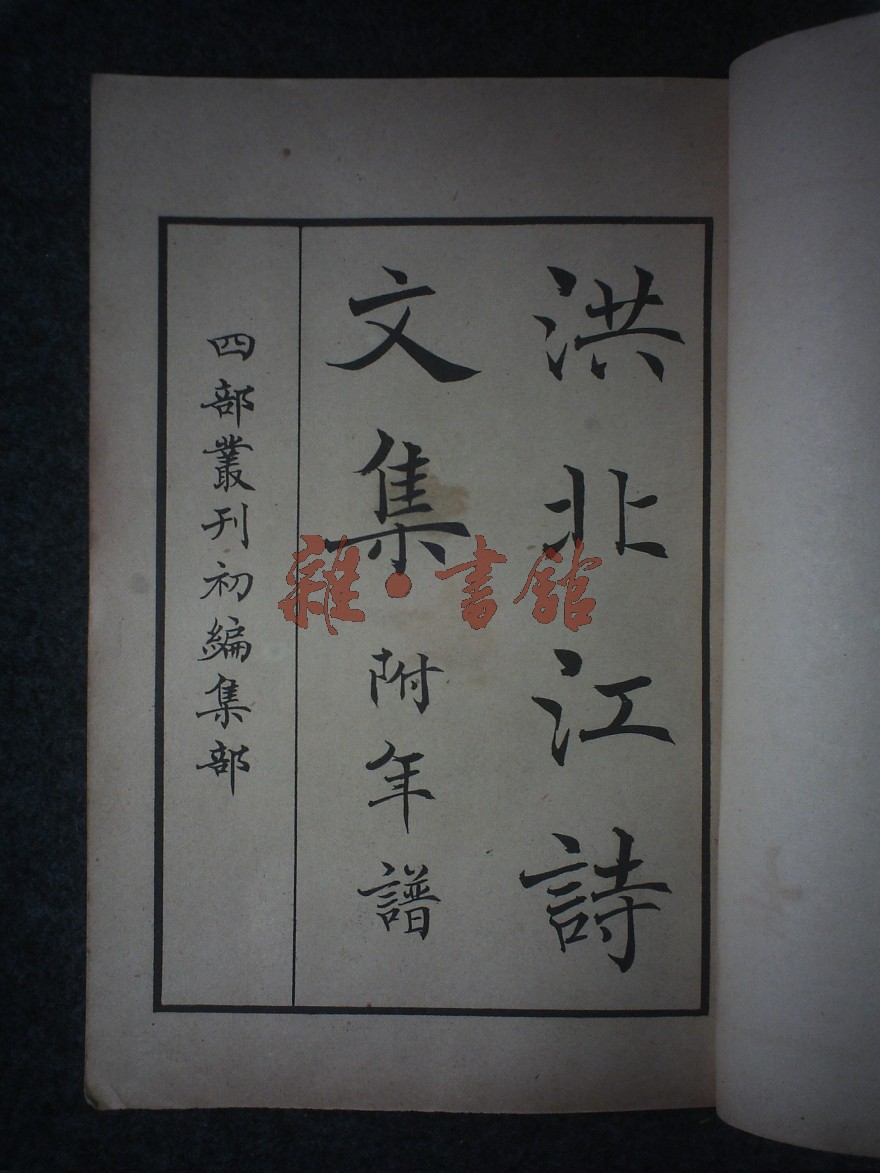 洪北江詩
文集附年譜
四部叢刊初編集部
雜·書館